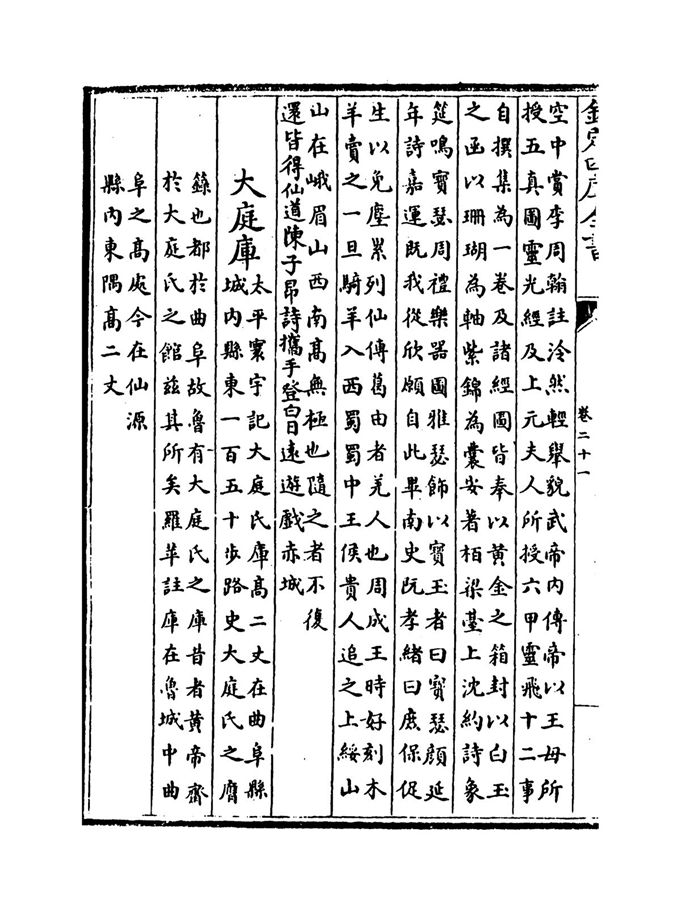 欽定四庫全書
卷二十一
空中賞李周翰註泠然輕舉貌武帝内傳帝以王母所
授五真圖靈光經及上元夫人所授六甲靈飛十二事
自撰集為一卷及諸經圖皆奉以黃金之箱封以白玉
之函以珊瑚為軸紫錦為囊安著柏梁臺上沈約詩象
筵鳴寶瑟周禮樂器圖雅瑟飾以寶玉者曰寶瑟顔延
年詩嘉運既我從欣願自此畢南史阮孝緒曰庶保促
生以免塵累列仙傳葛由者羌人也周成王時好刻木
羊賣之一旦騎羊入西蜀蜀中王侯貴人追之上綏山
山在峨眉山西南高無極也隨之者不復
還皆得仙道陳子昂詩攜手登白日遠遊戲赤城
大庭庫
太平寰宇記大庭氏庫高二丈在曲阜縣
城内縣東一百五十步路史大庭氏之膺
籙也都於曲阜故魯有大庭氏之庫昔者黃帝齋
於大庭氏之館兹其所矣羅苹註庫在魯城中曲
阜之高處今在仙源
縣内東隅高二丈